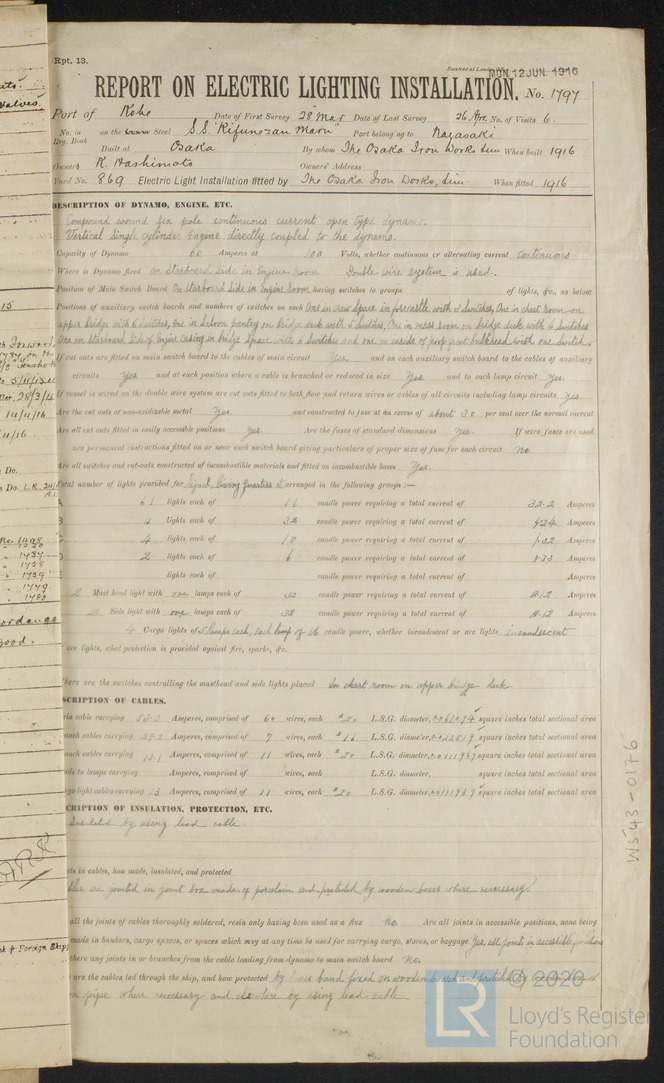 Rpt. 13.
Received at London
MON. 12 JUN. 1916
REPORT ON ELECTRIC LIGHTING INSTALLATION. No. 1797
Port of Kobe Date of First Survey 28 Mar Date of Last Survey 26 Apr. No. of Visits 6.
No. in Reg. Book on the Steel S.S. "Kifunezan Maru" Port belonging to Nagasaki
Built at Osaka By whom The Osaka Iron Works Lim When built 1916
Owners K. Hashimoto Owners' Address
Yard No. 869 Electric Light Installation fitted by The Osaka Iron Works, Lim. When fitted 1916
DESCRIPTION OF DYNAMO, ENGINE, ETC.
Compound wound six pole continuous current open type dynamo.
Vertical single cylinder Engine directly coupled to the dynamo.
Capacity of Dynamo 60 Amperes at 100 Volts, whether continuous or alternating current Continuous
Where is Dynamo fixed On Starboard Side in Engine Room Double wire system is used.
Position of Main Switch Board On Starboard Side in Engine Room having switches to groups of lights, &c., as below
Positions of auxiliary switch boards and numbers of switches on each One in crew space in forecastle with 2 Switches, One in chart room on
upper bridge with 6 switches, One in Saloon pantry on bridge deck with Switches, One in mess room on bridge deck with 4 Switches
One on starboard side of Engine Casing in bridge space with 6 Switches and one on inside of poop front bulkhead with one Switch.
If cut outs are fitted on main switch board to the cables of main circuit Yes. and on each auxiliary switch board to the cables of auxiliary
circuits Yes and at each position where a cable is branched or reduced in size Yes and to each lamp circuit Yes.
If vessel is wired on the double wire system are cut outs fitted to both flow and return wires or cables of all circuits including lamp circuits Yes
Are the cut outs of non-oxidizable metal Yes. and constructed to fuse at an excess of about 30 per cent over the normal current
Are all cut outs fitted in easily accessible positions Yes. Are the fuses of standard dimensions Yes. If wire fuses are used
are permanent instructions fitted on or near each switch board giving particulars of proper size of fuse for each circuit No.
Are all switches and cut-outs constructed of incombustible materials and fitted on incombustible bases Yes.
Total number of lights provided for Signal, living quarters &c arranged in the following groups :—
A 61 lights each of 11 candle power requiring a total current of 32.2 Amperes
B 4 lights each of 32 candle power requiring a total current of Amperes
C 4 lights each of 10 candle power requiring a total current of 1.32 Amperes
D 2 lights each of 6 candle power requiring a total current of 0.33 Amperes
lights each of candle power requiring a total current of Amperes
2 Mast head light with one lamps each of 32 candle power requiring a total current of 2.12 Amperes
2 Side light with one lamps each of 32 candle power requiring a total current of 2.12 Amperes
4 Cargo lights of 5 lamps each, each lamp of 16 candle power, whether incandescent or arc lights incandescent
arc lights, what protection is provided against fire, sparks, &c.
here are the switches controlling the masthead and side lights placed In chart room on upper bridge deck.
SCRIPTION OF CABLES.
in cable carrying Amperes, comprised of 60 wires, each #20 L.S.G. diameter, 0.061074 square inches total sectional area
anch cables carrying 29.2 Amperes, comprised of 7 wires, each #16 L.S.G. diameter, 0.022019 square inches total sectional area
anch cables carrying 13.1 Amperes, comprised of 11 wires, each #20 L.S.G. diameter, 0.0111969 square inches total sectional area
ds to lamps carrying Amperes, comprised of wires, each L.S.G. diameter, square inches total sectional area
rgo light cables carrying 13 Amperes, comprised of 11 wires, each #20 L.S.G. diameter, 0.0111969 square inches total sectional area
CRIPTION OF INSULATION, PROTECTION, ETC.
Insulated by using lead cable.
ts in cables, how made, insulated, and protected
bles are jointed in joint box made of porcelain and protected by wooden boxes where necessary.
all the joints of cables thoroughly soldered, resin only having been used as a flux No. Are all joints in accessible positions, none being
made in bunkers, cargo spaces, or spaces which may at any time be used for carrying cargo, stores, or baggage Yes, all joints in accessible positions
there any joints in or branches from the cable leading from dynamo to main switch board No.
are the cables led through the ship, and how protected by brass band fixed on wooden board and protected by
pipe where necessary and elsewhere by using lead cable.
W543-0176
LR
© 2020
Lloyd's Register
Foundation